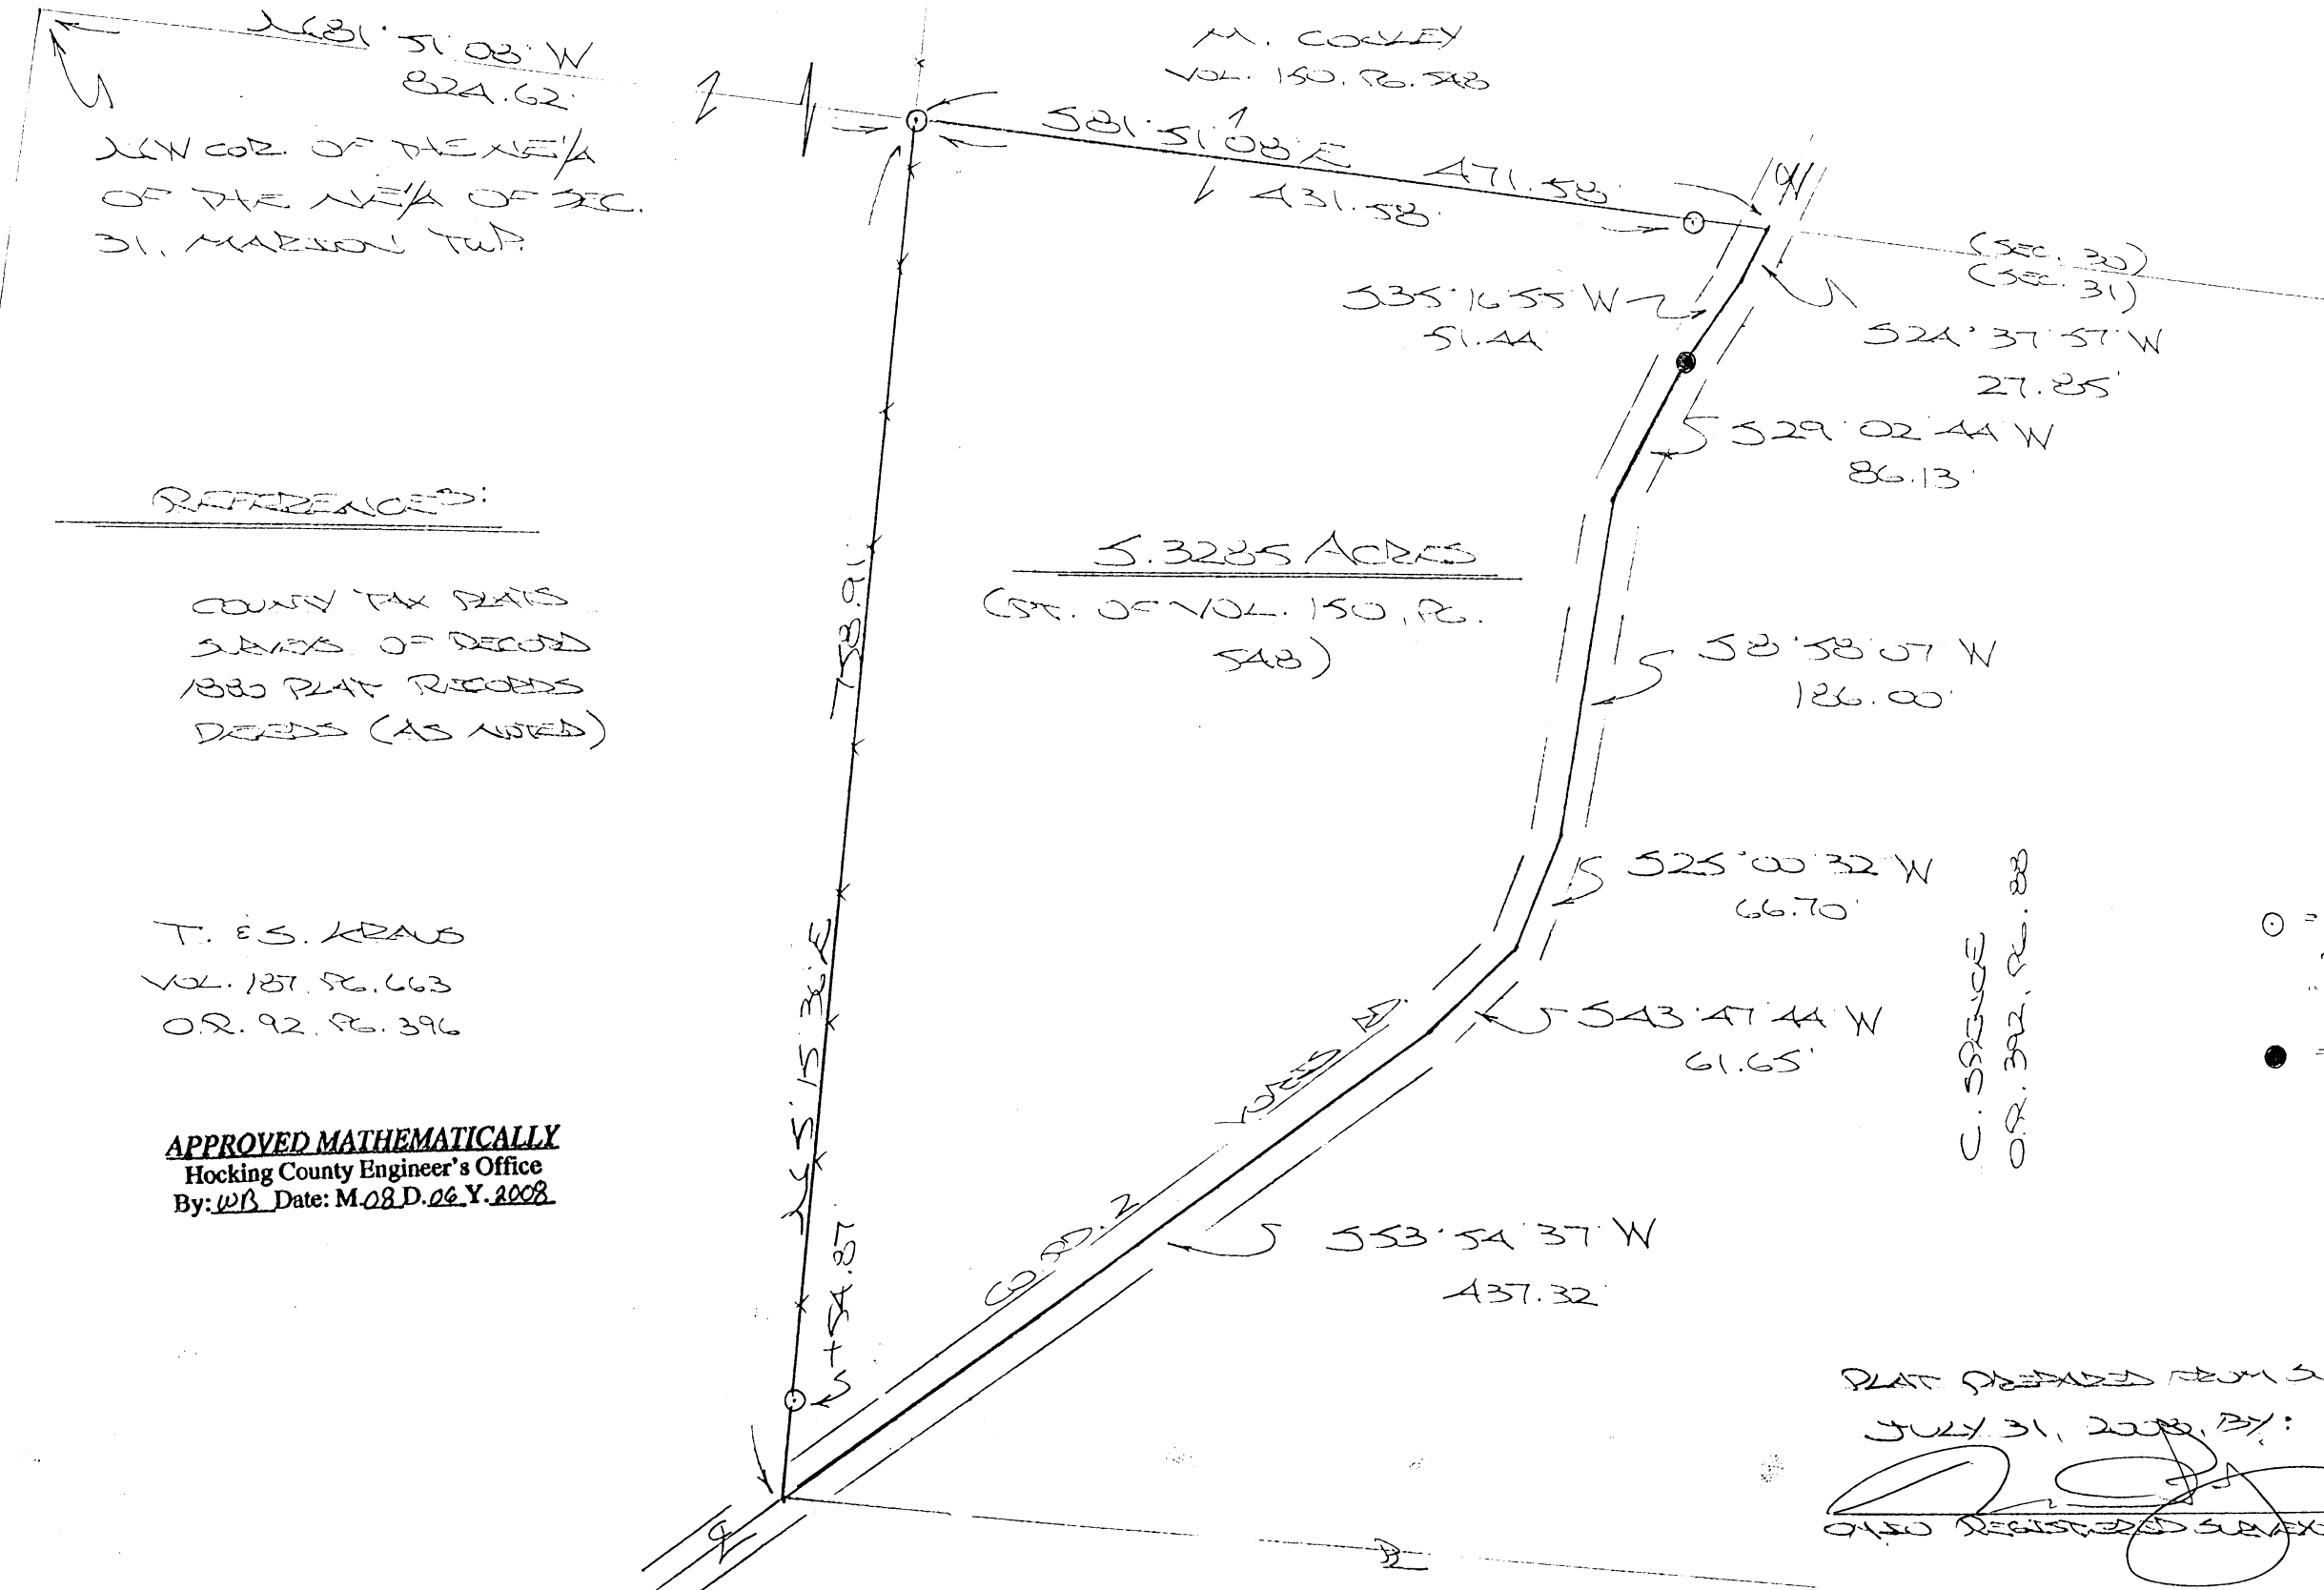 N81°51'08"W
824.62'
NW COR. OF THE NE 1/4
OF THE NE 1/4 OF SEC.
31, MARION TWP.
M. CONLEY
VOL. 150, PG. 548
S81°51'08"E 471.58'
431.58'
(SEC. 30)
(SEC. 31)
S35°16'55"W
51.44'
S24°37'57"W
27.85'
S29°02'44"W
86.13'
REFERENCES:
COUNTY TAX PLATS
SURVEYS OF RECORD
1880 PLAT RECORDS
DEEDS (AS NOTED)
5.3285 ACRES
(PT. OF VOL. 150, PG.
548)
N5°15'36"E 758.91'
S8°58'07"W
186.00'
S25°00'32"W
66.70'
S43°47'44"W
61.65'
C. SPENCE
O.R. 392, PG. 88
T. & S. KRAUS
VOL. 187, PG. 663
O.R. 92, PG. 396
APPROVED MATHEMATICALLY
Hocking County Engineer's Office
By: WB Date: M.08 D.06 Y.2008
CO. RD. 2 VORES RD.
+54.87'
S53°54'37"W
437.32'
PLAT PREPARED FROM
JULY 31, 2008, BY:
OHIO REGISTERED